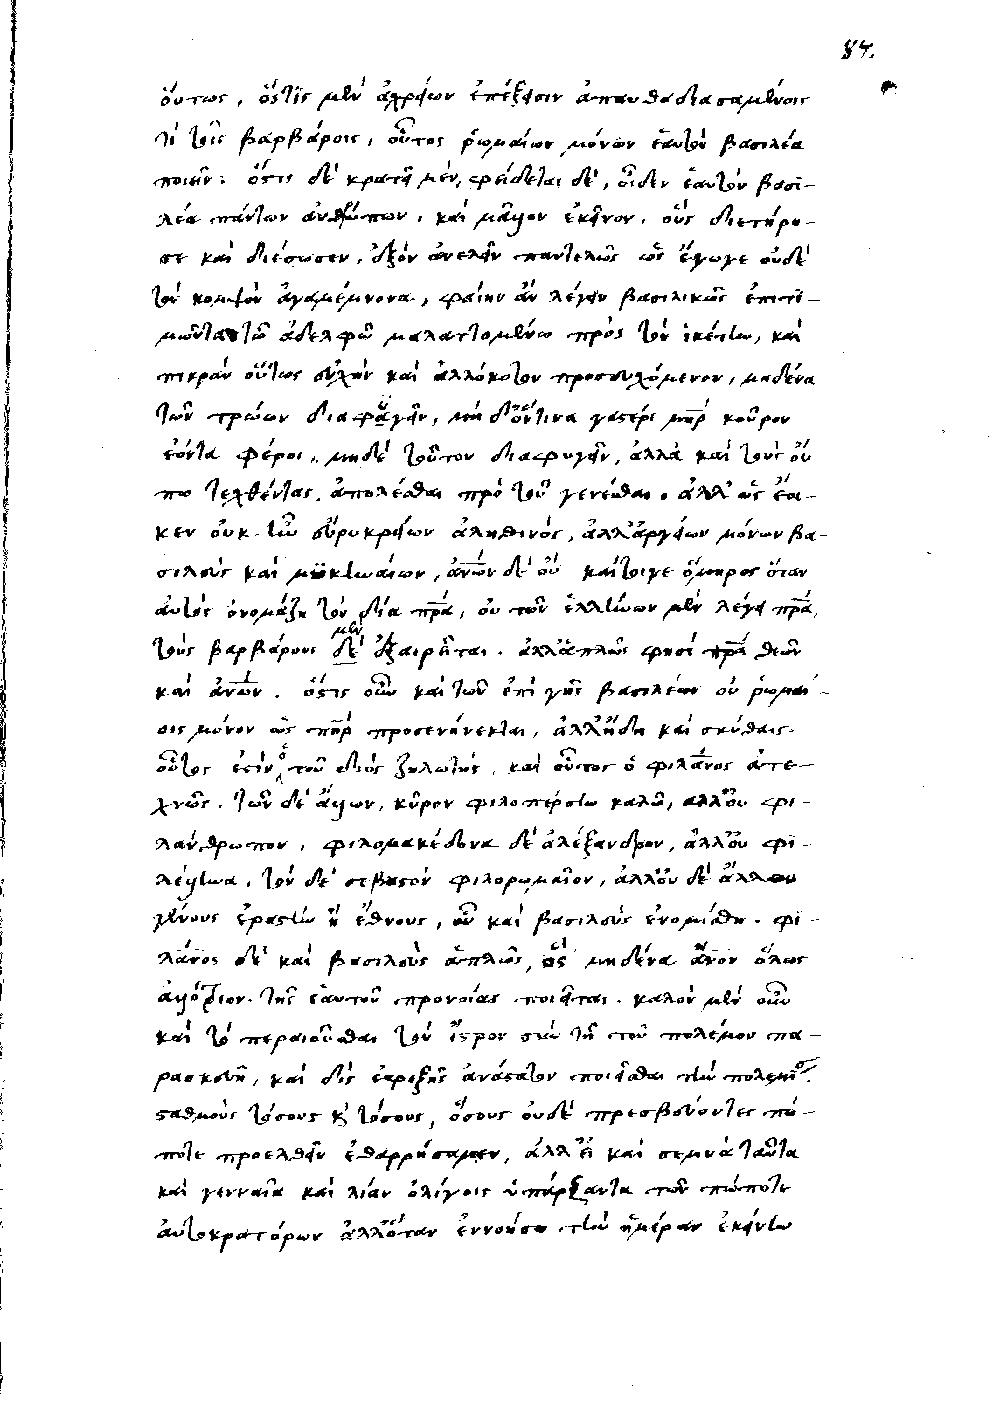 87.
οὕτως, ὅστις μὲν ἀχρείων ἐπέξεισιν ἀπαυθαδιασαμένοις
τι τοῖς βαρβάροις, οὗτος ῥωμαίων μόνων ἑαυτὸν βασιλέα
ποιεῖ· ὅστις δὲ κρατεῖ μὲν, φείδεται δὲ, οἶδεν ἑαυτὸν βασι-
λέα πάντων ἀνθρώπων, καὶ μᾶλλον ἐκείνων, οὓς διετήρη-
σε καὶ διέσωσεν, ἐξὸν ἀνελεῖν παντελῶς ὡς ἔγωγε οὐδὲ
τὸν κομψὸν ἀγαμέμνονα, φαίην ἂν λέγειν βασιλικῶς ἐπιτι-
μῶντα τῶ ἀδελφῶ μαλαττομένω πρὸς τὸν ἱκέτην, καὶ
πικρὰν οὕτως εὐχὴν καὶ ἀλλόκοτον προσευχόμενον, μηδένα
τῶν τρώων διαφυγεῖν, μηδ' ὅντινα γαστέρι μηρ κοῦρον
ἐόντα φέροι, μηδὲ τοῦτον διαφυγεῖν, ἀλλὰ καὶ τοὺς οὔ
πω τεχθέντας, ἀπολέσθαι πρὸ τοῦ γενέσθαι. ἀλλ' ὡς ἔοι-
κεν οὐκ ἦν εὐρυκρείων ἀληθινὸς, ἀλλ' ἀργείων μόνων βα-
σιλεὺς καὶ μυκηναίων, ἀνῶν δὲ οὔ καίτοιγε ὅμηρος ὅταν
αὐτὸς ὀνομάζη τὸν δία πρα, οὐ τῶν ἑλλήνων μὲν λέγει πρα,
τοὺς βαρβάρους δὲ μὲν ἐξαιρεῖται. ἀλλ' ἁπλῶς φησὶ πρα θεῶν
καὶ ἀνῶν. ὅστις οὖν καὶ τῶν ἐπὶ γῆς βασιλέων οὐ ῥωμαί-
οις μόνον ὡς πηρ προσενήνεκται, ἀλλ' ἤδη καὶ σκύθαις.
οὗτος ἐστὶν ὁ τοῦ διὸς ζηλωτὴς, καὶ οὗτος ὁ φιλανος ἀτε-
χνῶς. τῶν δὲ ἄλλων, κῦρον φιλοπέρσην καλῶ, ἀλλ' οὐ φι-
λάνθρωπον, φιλομακέδονα δὲ ἀλέξανδρον, ἀλλ' οὐ φι-
λέλληνα, τὸν δὲ σεβαστὸν φιλορωμαῖον, ἀλλ' οὐ δὲ ἄλλον
γένους ἐραστὴν ἢ ἔθνους, οὗ καὶ βασιλεὺς ἐνομίσθη. φι-
λανος δὲ καὶ βασιλεὺς ἁπλῶς, ὃς μηδένα ἄνον ὅλως
ἀλλότριον τῆς ἑαυτοῦ προνοίας ποιεῖται. καλὸν μὲν οὖν
καὶ τὸ περαιοῦσθαι τὸν ἴστρον σὺν τῆ τοῦ πολέμου πα-
ρασκευῆ, καὶ δὶς ἐφεξῆς ἀνάστατον ποιεῖσθαι τὴν πολεμίο.
σταθμοὺς τόσους καὶ τόσους, ὅσους οὐδὲ πρεσβεύοντες πώ-
ποτε προελθεῖν ἐθαρρήσαμεν, ἀλλ' εἰ καὶ σεμνὰ ταῦτα
καὶ γενναῖα καὶ λίαν ὀλίγοις ὑπάρξαντα τῶν πώποτε
αὐτοκρατόρων ἀλλ' ὅταν ἐννοήσω τὴν ἡμέραν ἐκείνην